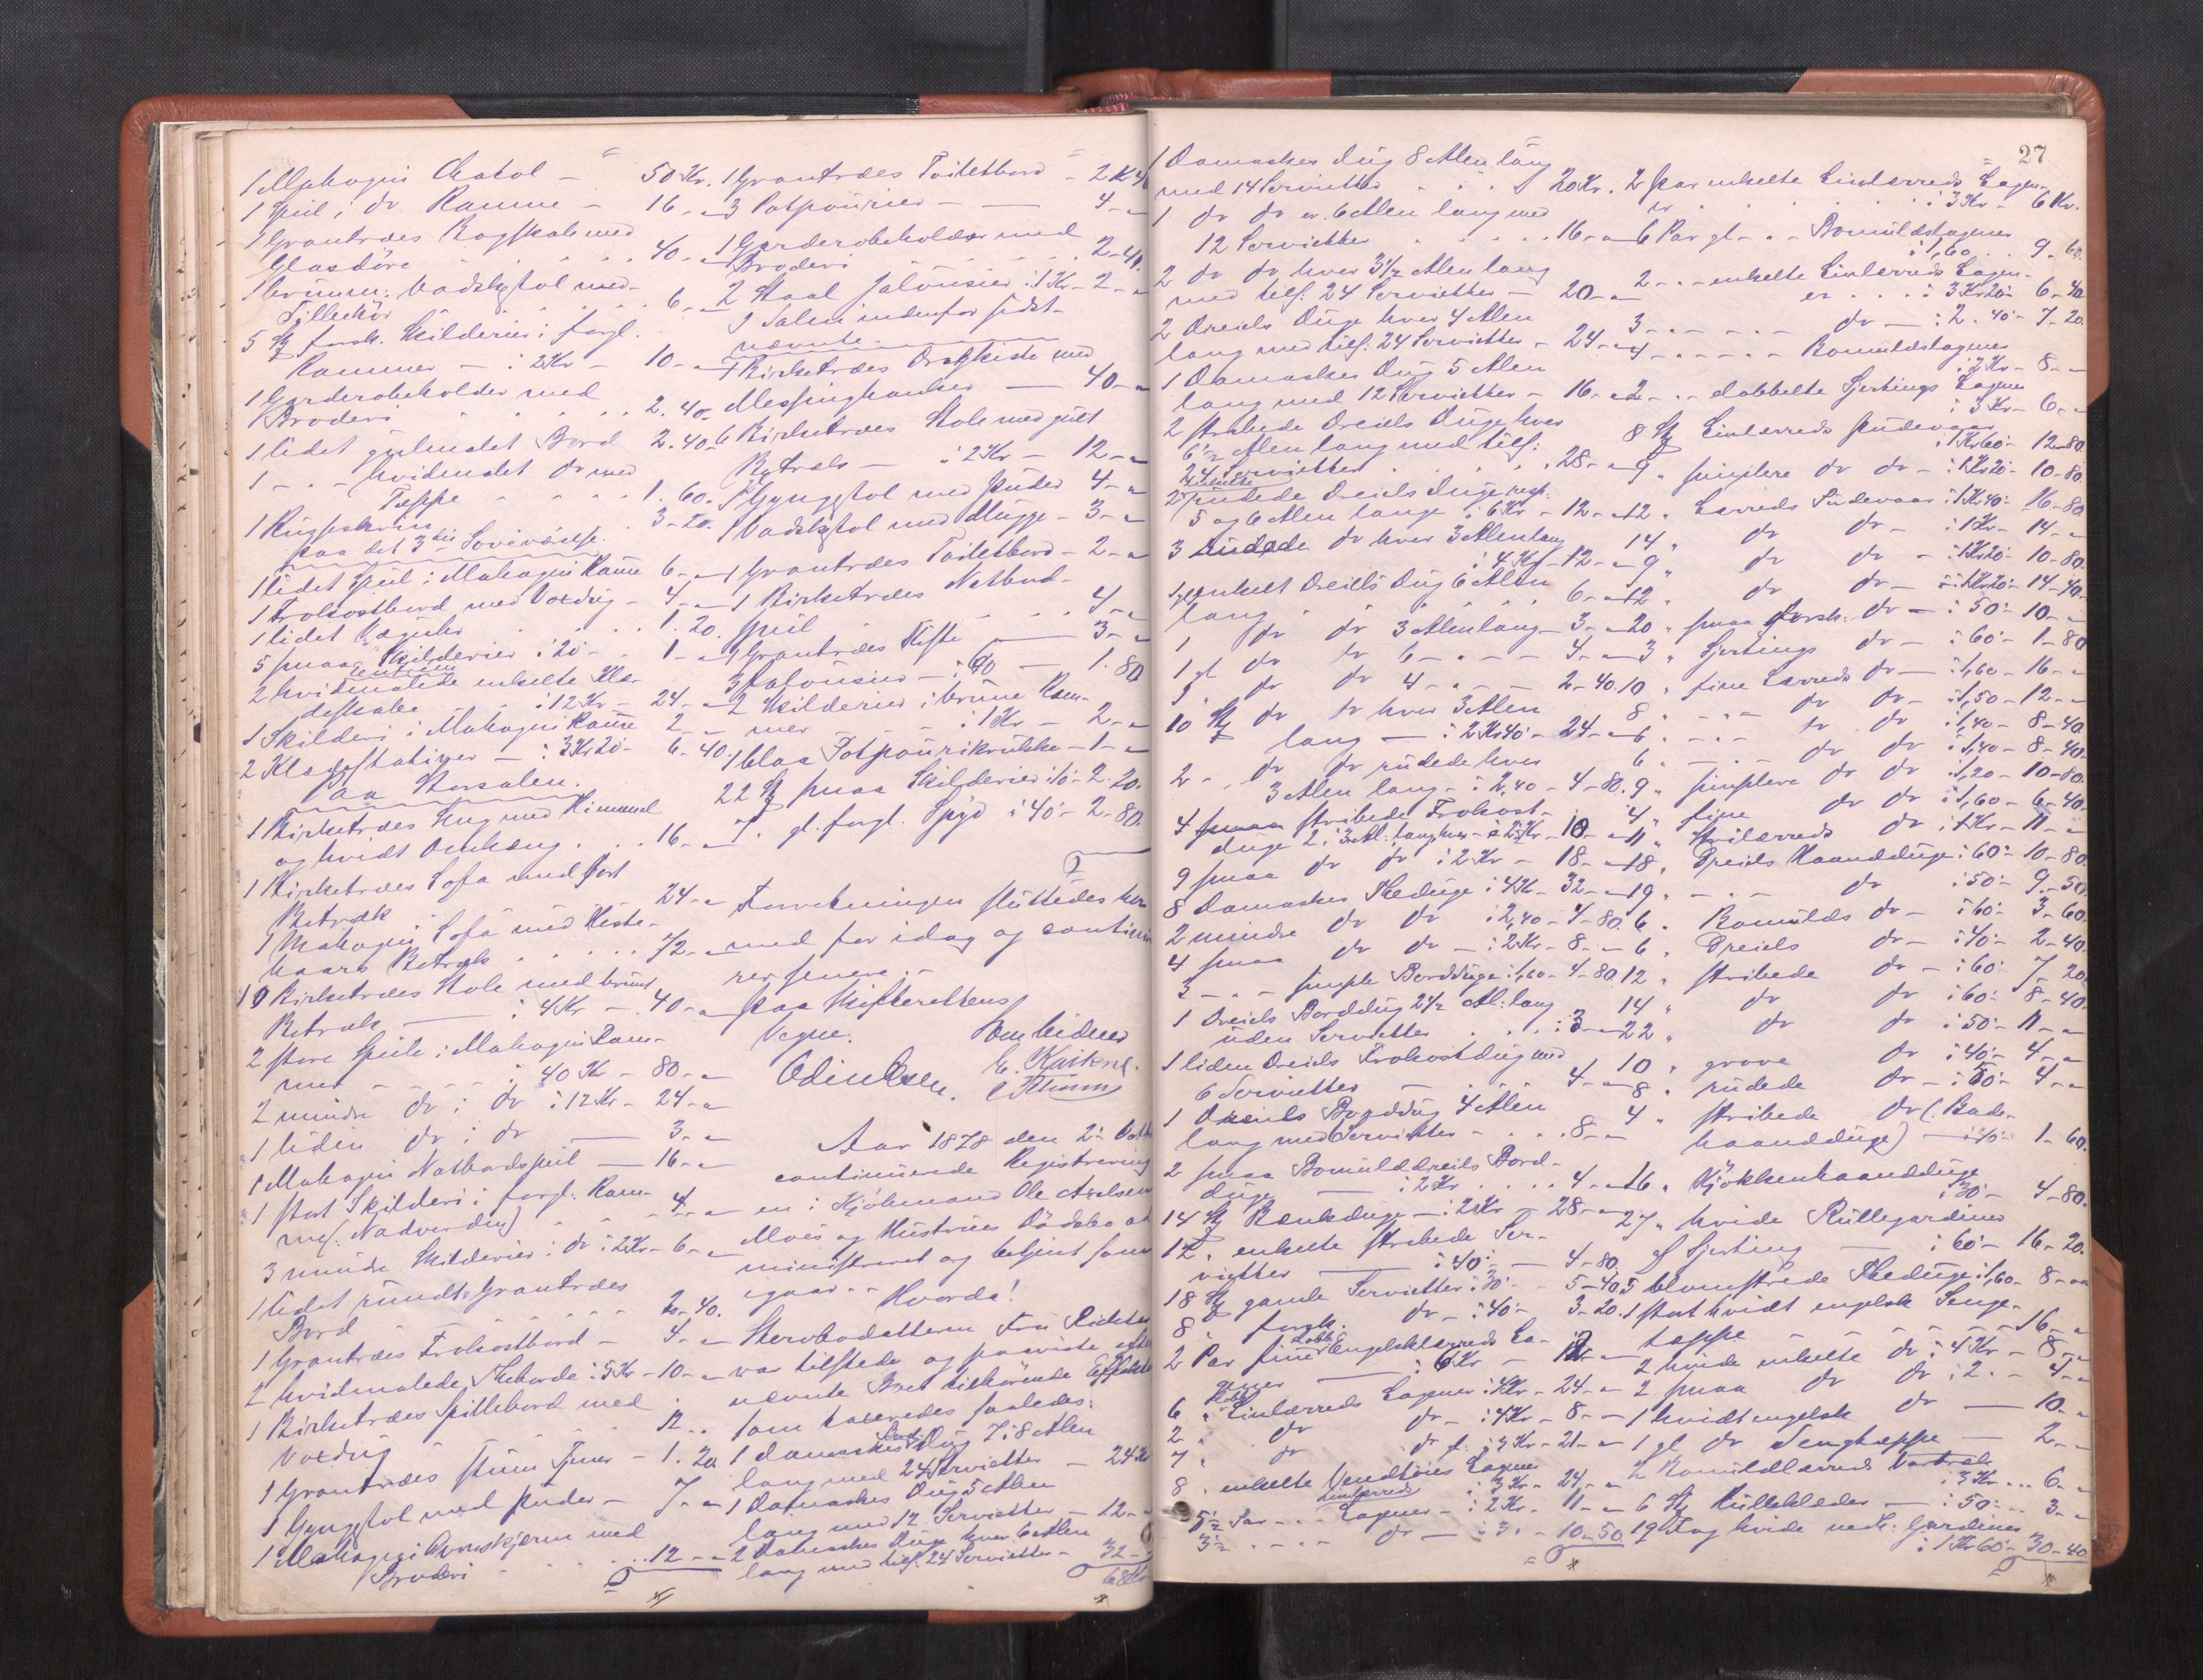 1 Mahogni Chatol - 50 Kr.
1 Speil i do Ramme - 16 - "
1 Grantræes Bogskab med
Glasdöre . . . . 40 - "
1 brunm. Vadskstol med
Tillbehör . . . . 6 - "
5 St forsk. Skilderier i forgl.
Rammer - à 2 Kr - 10 - "
1 Garderobeholder med
Broderi . . . . 2. 40
1 lidet gulmalet Bord 2. 40.
1 - " - hvidmalet do med
Teppe . . . . 1. 60.
1 Rugskrin . . . 3 - 20.
paa det 3die Soveværelse.
1 lidet Speil i Mahogni Ramme 6 - "
1 Frokostbord med Voxdug - 4 - "
1 lidet . . . . 1. 20
5 smaa Skilderier à 20 - 1 - "
2 hvidmalede enkelte Klæ-
deskabe à 12 Kr - 24 - "
1 Skilderi i Mahogni Ramme 2 - "
2 Klædestativer - à 3 Kr 20 - 6 - 40.
Paa Storsalen.
1 Birketræes Seng med Himmel
og hvidt Omhæng . . 16 - "
1 Birketræes Sofa med sort
Betræk . . . 24 - "
1 Mahogni Sofa med Heste-
haars Betræk . . . 72 - "
10 Birketræes Stole med brunt
Betræk - à 4 Kr - 40 - "
2 store Speile i Mahogni Ram-
mer - - - à 40 Kr - 80 - "
2 mindre do i do à 12 Kr - 24 - "
1 liden do i do - 3 - "
1 Mahogni Natbordspeil - 16 - "
1 stort Skilderi i forgl. Ram-
me (Nadverden) . . 4 - "
3 mindre Skilderier i do à 2 Kr - 6 - "
1 lidet rundt Grantræes
Bord - . . . 2 - 40.
1 Grantræes Frokostbord - 4 - "
2 hvidmalede Theborde à 5 Kr - 10 - "
1 Birketræes Spillebord med
Voxdug . . . 12 - "
1 Grantræes stum Tjener - 1. 20
1 Gyngestol med Puder - 7 - "
1 Mahogni Ovnskjerm med
Broderi . . . 12 - "
1 Grantræes Toiletbord - 2 Kr 40
3 Potpourier - 4 - "
1 Garderobeholder med
Broderi . . . 2 - 40.
2 Staal Jalousier à 1 Kr - 2 - "
I Salen indenfor sidst-
nævnte.
1 Birketræes Dragkiste med
Messinghanker - 40 - "
6 Birketræes Stole med gult
Betræk - à 2 Kr - 12 - "
1 Gyngestol med Puder 4 - "
1 Vadskstol med Mugge - 3 - "
1 Grantræes Toiletbord - 2 - "
1 Birketræes Natbord-
speil . . . 4 - "
1 Grantræes Kiste - 3 - "
3 Jalousier - à 60 - 1. 80
2 Skilderier i brune Ram-
mer - - à 1 Kr - 2 - "
1 blaa Potpourikrukke - 1 - "
22 St smaa Skilderier à 10 - 2. 20.
7 " gl. forgl. Spyd à 40 - 2. 80.
Forretningen sluttedes her-
med for idag og continue-
res senere. -
Paa Skifterettens
Vegne. Som Vidner
Aar 1878 den 2. Octbr
continuerede Registrering
en i Kjöbmand Ole Axelsen
Moes og Hustrues Dödsbo ad
ministreret og betjent som
igaar - Hvorda!
Stervbodatteren Fru Richter
var tilstede og paaviste efter
nævnte Boet tilhörende Effekter
som taxeredes saaledes:
1 damaskes Bord Dug 7 à 8 Alen
lang med 24 Servietter - 24 Kr
1 Damaskes Dug 5 Alen
lang med 12 Servietter - 12 - "
2 Damaskes Duge hver 6 Alen
lang med tils. 24 Servietter - 32 - "
68 Kr
27
1 Damaskes Dug 8 Alen lang
med 14 Servietter . . . 20 Kr.
1 do do er 6 Alen lang med
12 Servietter . . . 16 - "
2 do do hver 3½ Alen lang
med tils. 24 Servietter - 20 - "
2 Dreiels Duge hver 4 Alen
lang med tils. 24 Servietter - 24 - "
1 Damaskes Dug 5 Alen
lang med 12 Servietter - 16 - "
2 stribede Dreiels Duge hver
6½ Alen lang med tils.
24 Servietter . . . 28 - "
2 enkelte rudede Dreiels Duge resp.
5 og 6 Alen lange à 6 Kr - 12 - "
3 rudede do hver 3 Alen lang
à 4 Kr - 12 - "
1 gl enkelt Dreiels Dug 6 Alen
lang . . . 6 - "
1 do do 3 Alen lang - 3 - "
1 gl do do 6 - " - 4 - "
1 " do do 4 - " - 2 - 40.
10 St do do hver 3 Alen
lang - à 2 Kr 40 - 24 - "
2 " do do rudede hver
3 Alen lang - à 2,40 - 4 - 80.
4 smaa stribede Frokost-
duge 2 à 3 Al. lang hver - à 2½ Kr - 10 - "
9 smaa do do à 2 Kr - 18 - "
8 Damaskes Theduge à 4 Kr - 32 - "
2 mindre do do à 2,40 - 4 - 80.
4 smaa do do - à 2 Kr - 8 - "
3 - " - simple Bordduge à 1,60 - 4 - 80.
1 Dreiels Borddug 2½ Al. lang
uden Servietter . . . 3 - "
1 liden Dreiels Frokostdug med
6 Servietter - . . 4 - "
1 Dreiels Borddug 4 Alen
lang med Servietter - . . 8 - "
2 smaa Bomuldsdreiels Bord-
duge - à 2 Kr . . . 4 - "
14 St Bænkeduge - à 2 Kr - 28 - "
12 " enkelte stribede Ser-
vietter - à 40 - 4 - 80.
18 St gamle Servietter à 30 - 5 - 40.
8 " forsk. do - à 40 - 3 - 20.
2 Par fine dobb. Engelsklærreds La-
gener - à 6 Kr - 12 - "
6 " Linlærreds Lagener à 4 Kr - 24 - "
2 " do do - à 4 Kr - 8 - "
7 " do do à 3 Kr - 21 - "
8 " enkelte Vendtöies Lagener
à 3 Kr - 24 - "
5½ Par - " - Linlærreds Lagener - à 2 Kr - 11 - "
3½ - " - " - do - à 3 " - 10 - 50.
2 Par enkelte Linlærreds Lagen-
er . . . à 3 Kr - 6 Kr.
6 Par gl - " - Bomuldslagener
à 1,60 . . 9. 60.
2 - " - enkelte Linlærreds Lagen-
er . . . à 3 Kr 20 - 6 - 40
3 - " - " - do - à 2. 40 - 7 - 20.
4 - " - " - Bomuldslagener
à 2 Kr - 8 - "
2 - " - dobbelte Sjertings Lagener
à 3 Kr - 6 - "
8 St Linlærreds Pudevaar
à 1 Kr 60 - 12 - 80.
9 " simplere do do - à 1 Kr 20 - 10 - 80.
12 " Lærreds Pudevaar à 1 Kr 40 - 16 - 80
14 " do do - à 1 Kr - 14 - "
9 " do do - à 1 Kr 20 - 10 - 80.
12 " do do - à 1 Kr 20 - 14 - 40.
20 " smaa forsk. do - à 50 - 10 - "
3 " Sjertings do - à 60 - 1 - 80
10 " fine Lærreds do - à 1,60 - 16 - "
8 " - " - do do - à 1,50 - 12 - "
6 " - " - do do à 1,40 - 8 - 40
6 " - " - do do à 1,40 - 8 - 40.
9 " simplere do do à 1,20 - 10 - 80.
4 " fine do do à 1,60 - 6 - 40.
11 " Strilærreds do à 1 Kr - 11 - "
18 " Dreiels Haandduge à 60 - 10 - 80.
19 " - " - do à 50 - 9. - 50
6 " Bomulds do - à 60 - 3 - 60.
6 " Dreiels do - à 40 - 2 - 40.
12 " stribede do - à 60 - 7 - 20
14 " do do à 60 - 8 - 40.
22 " do do à 50 - 11 - "
10 " grove do à 40 - 4 - "
8 " rudede do - à 50 - 4 - "
4 " stribede do (: Bade-
haandduge) - à 40 - 1 - 60.
16 " Kjökkenhaandduge
à 30 - 4 - 80.
27 " hvide Rullegardiner
af Sjerting - à 60 - 16 - 20.
5 blomstrede Theduge à 1,60 - 8 - "
1 stort hvidt engelsk Senge-
teppe - - - - 16 - "
2 hvide enkelte do à 4 Kr - 8 - "
2 smaa do do à 2 " - 4 - "
1 hvidt engelsk do - 10 - "
1 gl do Sengteppe - 2 - "
2 Bomuldlærreds Vartræk
à 3 Kr . . . 6 - "
6 St Rulleklæder - à 50 . . 3 - "
19 Fag hvide Gardiner
à 1 Kr 60 - 30 - 40